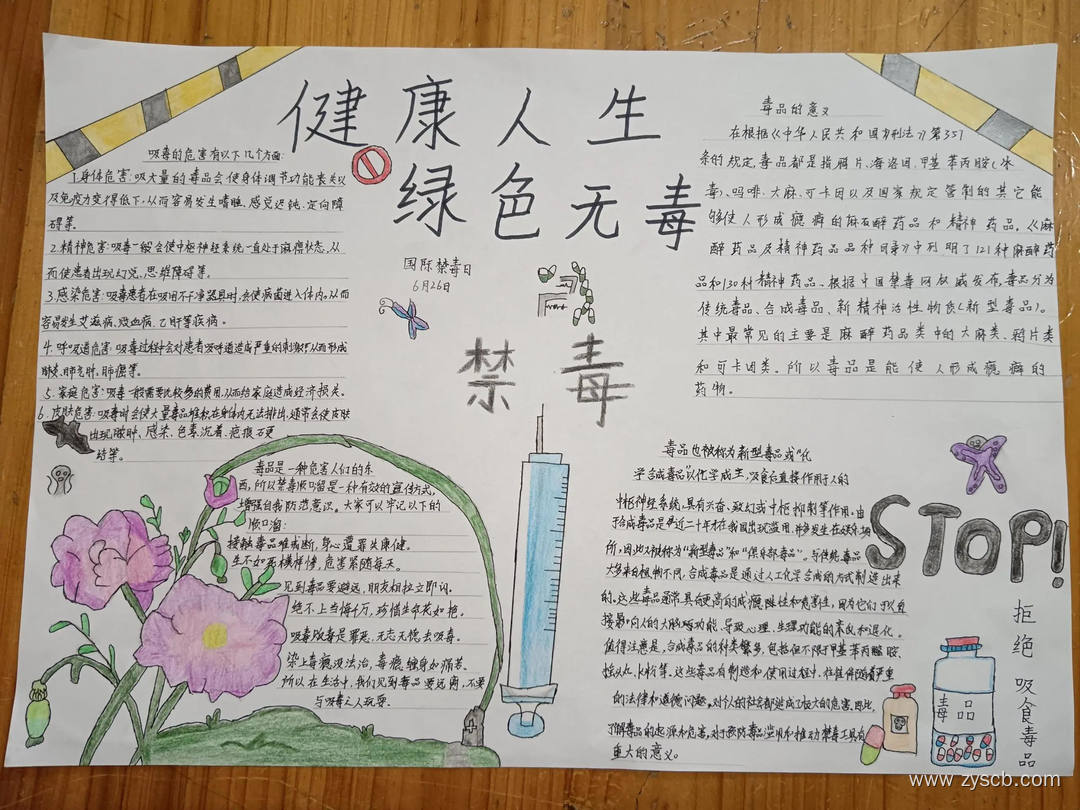 健康人生
绿色无毒
国际禁毒日
6月26日
禁毒
吸毒的危害有以下几个方面:
1.身体危害:吸大量的毒品会使身体调节功能丧失以
及免疫力变得低下,从而容易发生嗜睡、感觉迟钝、定向障
碍等。
2.精神危害:吸毒一般会使中枢神经系统一直处于麻痹状态,从
而使患者出现幻觉、思维障碍等。
3.感染危害:吸毒患者在吸用不干净器具时,会使病菌进入体内。从而
容易发生艾滋病、败血病、乙肝等疾病。
4.呼吸道危害:吸毒过程中会对患者呼吸道造成严重的刺激,从而形成
肺炎、肺气肿、肺癌等。
5.家庭危害:吸毒一般需要比较多的费用,从而给家庭造成经济损失。
6.皮肤危害:吸毒时会使大量毒品堆积在身体内无法排出,还常会使皮肤
出现脓肿、感染、色素沉着、疤痕石更
结等。
毒品是一种危害人们的东
西,所以禁毒顺口溜是一种有效的宣传方式,
增强自我防范意识。大家可以牢记以下的
顺口溜:
接触毒品难戒断,身心遭罪失康健。
生不如死横样惨,危害紧随每天。
见到毒品要避远,朋友相拉立即闪。
绝不上当悔千万,珍惜生命花如艳。
吸毒贩毒是罪恶,无志无愧去吸毒。
染上毒瘾没法治,毒瘾缠身如痛苦。
所以在生活中,我们见到毒品要远离,不要
与吸毒之人玩耍.
毒品的意义
在根据《中华人民共和国刑法》第357
条的规定,毒品都是指鸦片、海洛因、甲基苯丙胺(冰
毒)、吗啡、大麻、可卡因以及国家规定管制的其它能
够使人形成瘾癖的麻醉药品和精神药品。《麻
醉药品及精神药品品种目录》中列明了121种麻醉药
品和130种精神药品。根据中国禁毒网权威发布,毒品分为
传统毒品、合成毒品、新精神活性物质(新型毒品)。
其中最常见的主要是麻醉药品类中的大麻类、鸦片类
和可卡因类。所以毒品是能使人形成瘾癖的
药物。
毒品也被称为新型毒品或"化
学合成毒品"以化学成主,吸食后直接作用于人的
中枢神经系统,具有兴奋、致幻或中枢抑制等作用。由
于合成毒品是近二十年才在我国出现滥用,常发生在娱乐场
所,因此又被称为"新型毒品"和"俱乐部毒品"。与传统毒品
大多来自植物不同,合成毒品是通过人工化学合成的方式制造出来
的。这些毒品通常具有更高的成瘾性和危害性,因为它们可以直
接影响人的大脑功能,导致心理、生理功能的紊乱和退化。
值得注意是,合成毒品的种类繁多,包括但不限于甲基苯丙胺、
摇头丸、K粉等。这些毒品在制造和使用过程中,往往伴随着严重
的法律和道德问题。对个人的社会都造成了极大的危害,因此,
了解毒品的起源和危害,对于预防毒品滥用和推动禁毒工具有
重大的意义。
STOP!
拒绝吸食毒品
毒品
www.zyscb.com